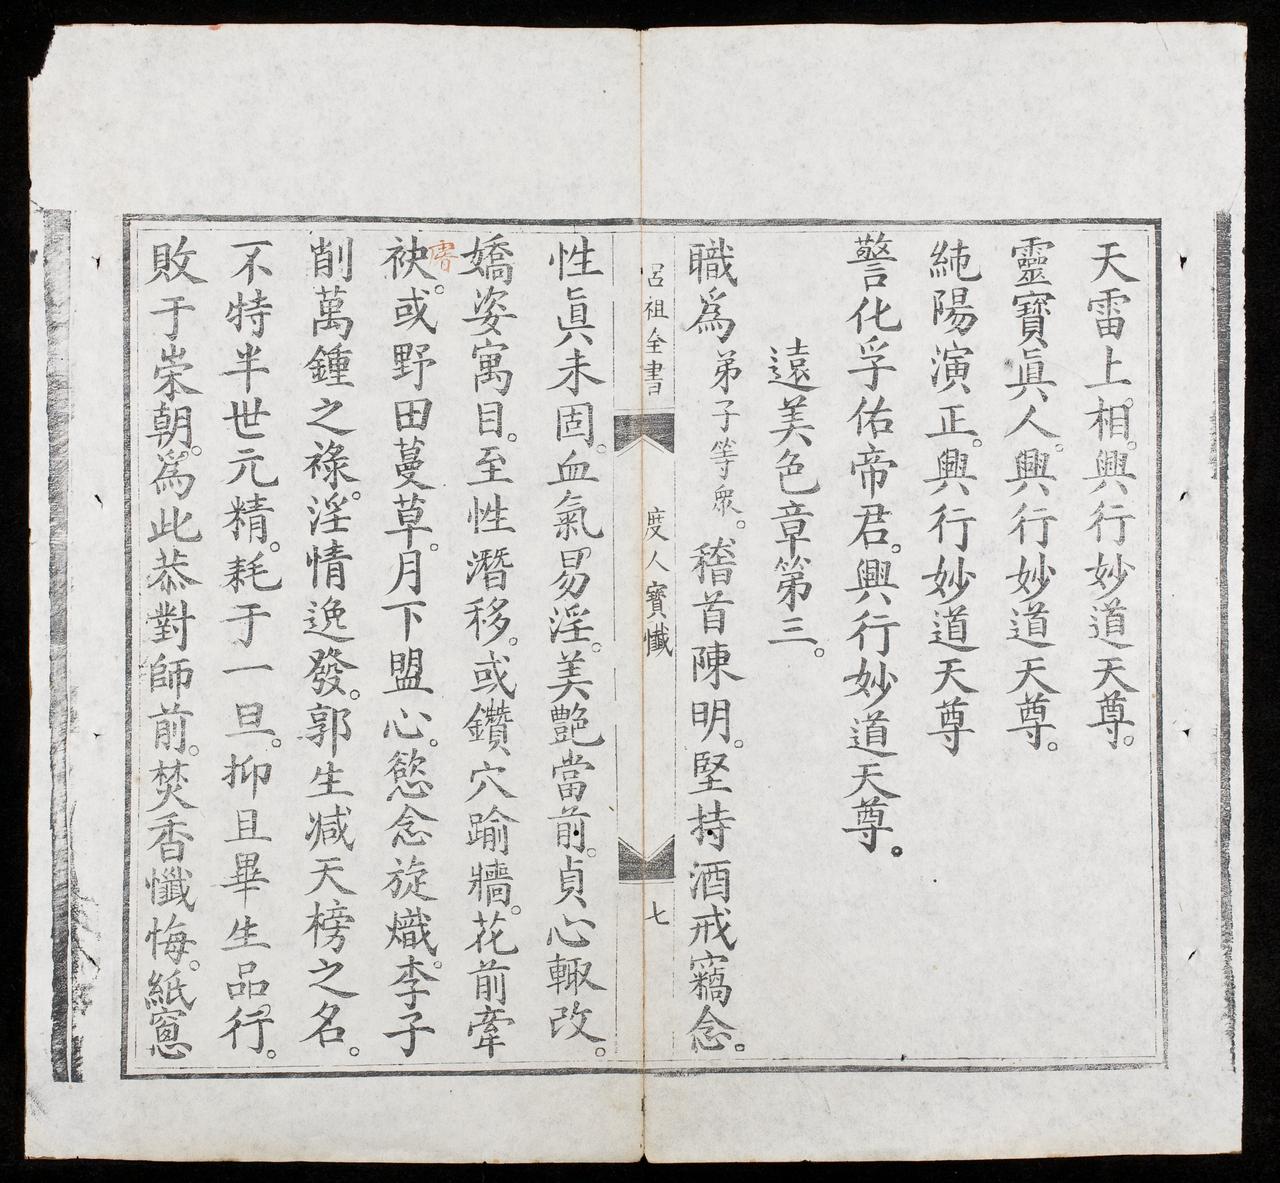 天雷上相。興行妙道天尊。
靈寶眞人。興行妙道天尊。
純陽演正。興行妙道天尊
警化孚佑帝君。興行妙道天尊。
遠美色章第三。
職爲弟子等衆。稽首陳明。堅持酒戒竊念。
呂祖全書
度人寶懺
七
性眞未固。血氣易淫。美艷當前。貞心輙改。
嬌姿寓目。至性潛移。或鑽穴踰牆。花前牽
袂。或野田蔓草。月下盟心。慾念旋熾。李子
削萬鍾之祿。淫情逸發。郭生减天榜之名。
不特半世元精。耗于一旦。抑且畢生品行。
敗于崇朝。爲此恭對師前。焚香懺悔。紙窻